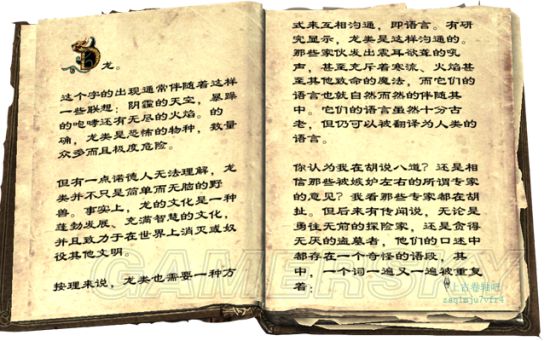 龙。
这个字的出现通常伴随着这样
一些联想：阴霾的天空，暴躁
的咆哮还有无尽的火焰。的
确，龙类是恐怖的物种，数量
众多而且极度危险。
但有一点诺德人无法理解，龙
类并不只是简单而无脑的野
兽。事实上，龙的文化是一种
蓬勃发展、充满智慧的文化，
并且致力于在世界上消灭或奴
役其他文明。
按理来说，龙类也需要一种方
式来互相沟通，即语言。有研
究显示，龙类是这样沟通的。
那些家伙发出震耳欲聋的吼
声，甚至充斥着寒流、火焰甚
至其他致命的魔法，而它们的
语言也就自然而然的伴随其
中。它们的语言虽然十分古
老，但仍可以被翻译为人类的
语言。
你认为我在胡说八道？还是相
信那些被嫉妒左右的所谓专家
的意见？我看那些专家都在胡
扯。但后来有传闻说，无论是
勇往无前的探险家，还是贪得
无厌的盗墓者，他们的口述中
都存在一个奇怪的语段，其
中，一个词一遍又一遍被重复
着：
GAMERSKY
上古卷轴吧
zaqimju7vfr4